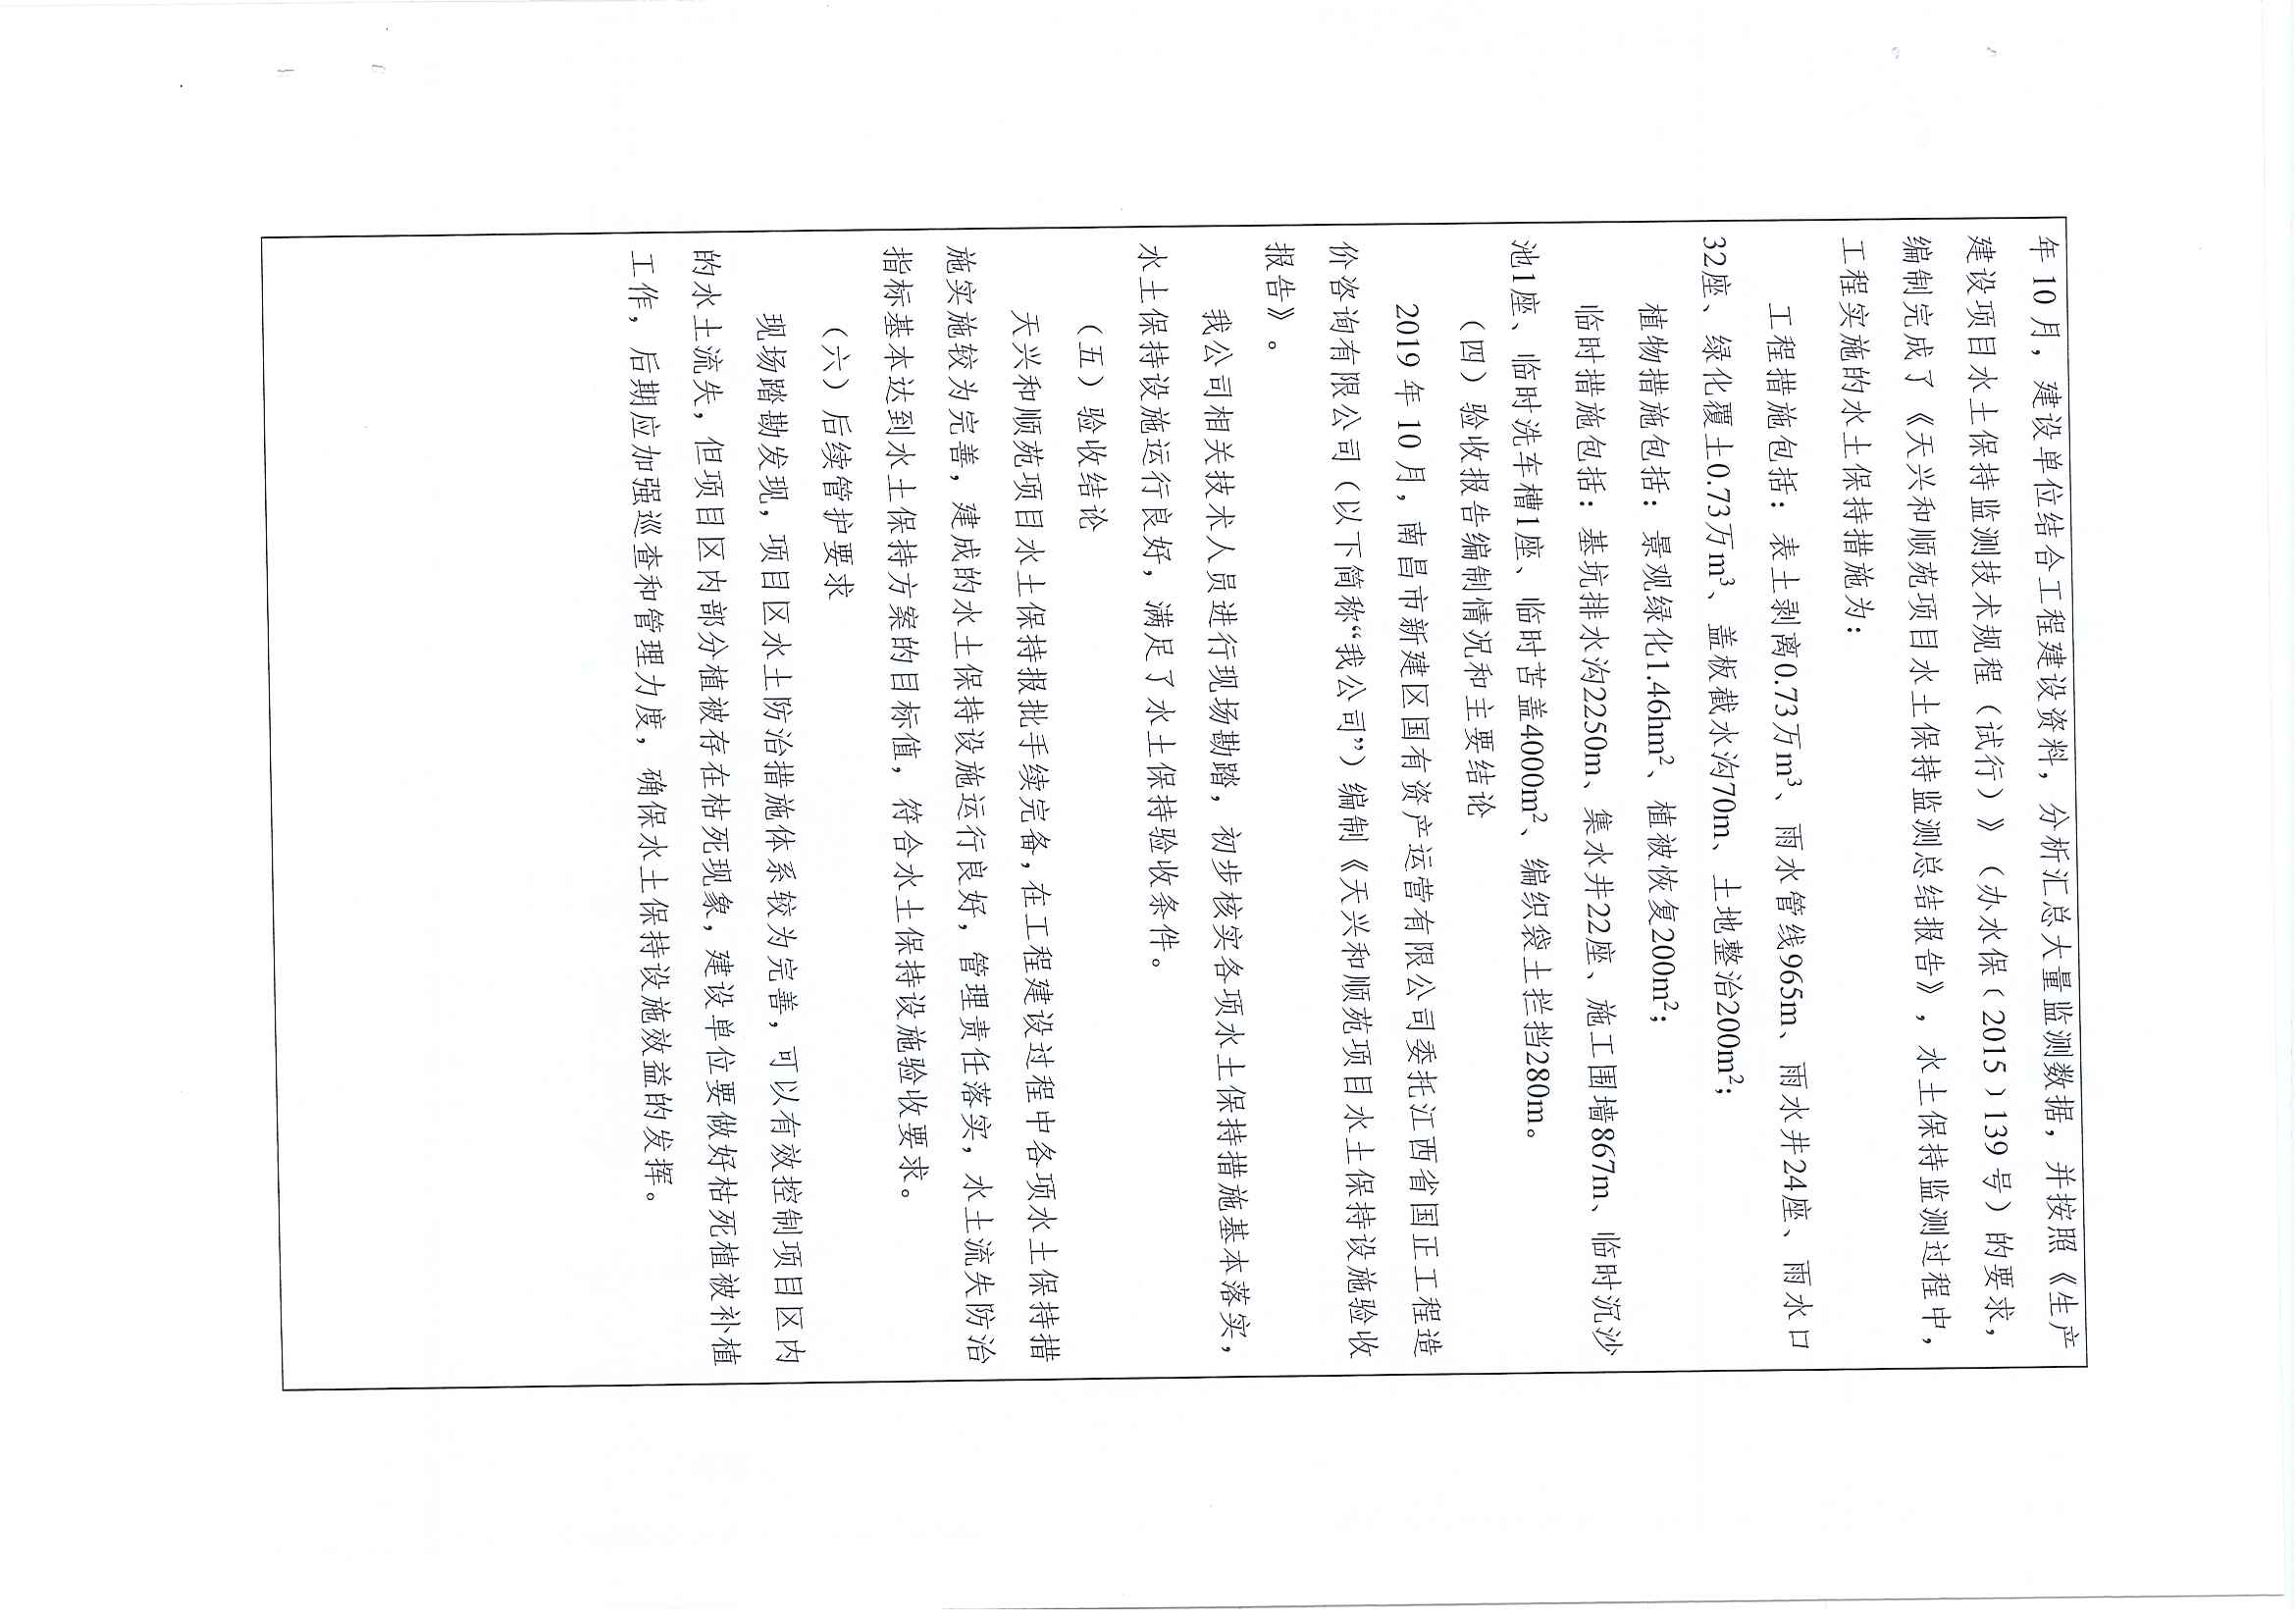 年 10 月，建设单位结合工程建设资料，分析汇总大量监测数据，并按照《生产
建设项目水土保持监测技术规程（试行）》（办水保﹝2015﹞139 号）的要求，
编制完成了《天兴和顺苑项目水土保持监测总结报告》，水土保持监测过程中，
工程实施的水土保持措施为：
工程措施包括：表土剥离0.73万m³、雨水管线965m、雨水井24座、雨水口
32座、绿化覆土0.73万m³、盖板截水沟70m、土地整治200m²；
植物措施包括：景观绿化1.46hm²、植被恢复200m²；
临时措施包括：基坑排水沟2250m、集水井22座、施工围墙867m、临时沉沙
池1座、临时洗车槽1座、临时苫盖4000m²、编织袋土拦挡280m。
（四）验收报告编制情况和主要结论
2019 年 10 月，南昌市新建区国有资产运营有限公司委托江西省国正工程造
价咨询有限公司（以下简称“我公司”）编制《天兴和顺苑项目水土保持设施验收
报告》。
我公司相关技术人员进行现场勘踏，初步核实各项水土保持措施基本落实，
水土保持设施运行良好，满足了水土保持验收条件。
（五）验收结论
天兴和顺苑项目水土保持报批手续完备，在工程建设过程中各项水土保持措
施实施较为完善，建成的水土保持设施运行良好，管理责任落实，水土流失防治
指标基本达到水土保持方案的目标值，符合水土保持设施验收要求。
（六）后续管护要求
现场踏勘发现，项目区水土防治措施体系较为完善，可以有效控制项目区内
的水土流失，但项目区内部分植被存在枯死现象，建设单位要做好枯死植被补植
工作，后期应加强巡查和管理力度，确保水土保持设施效益的发挥。